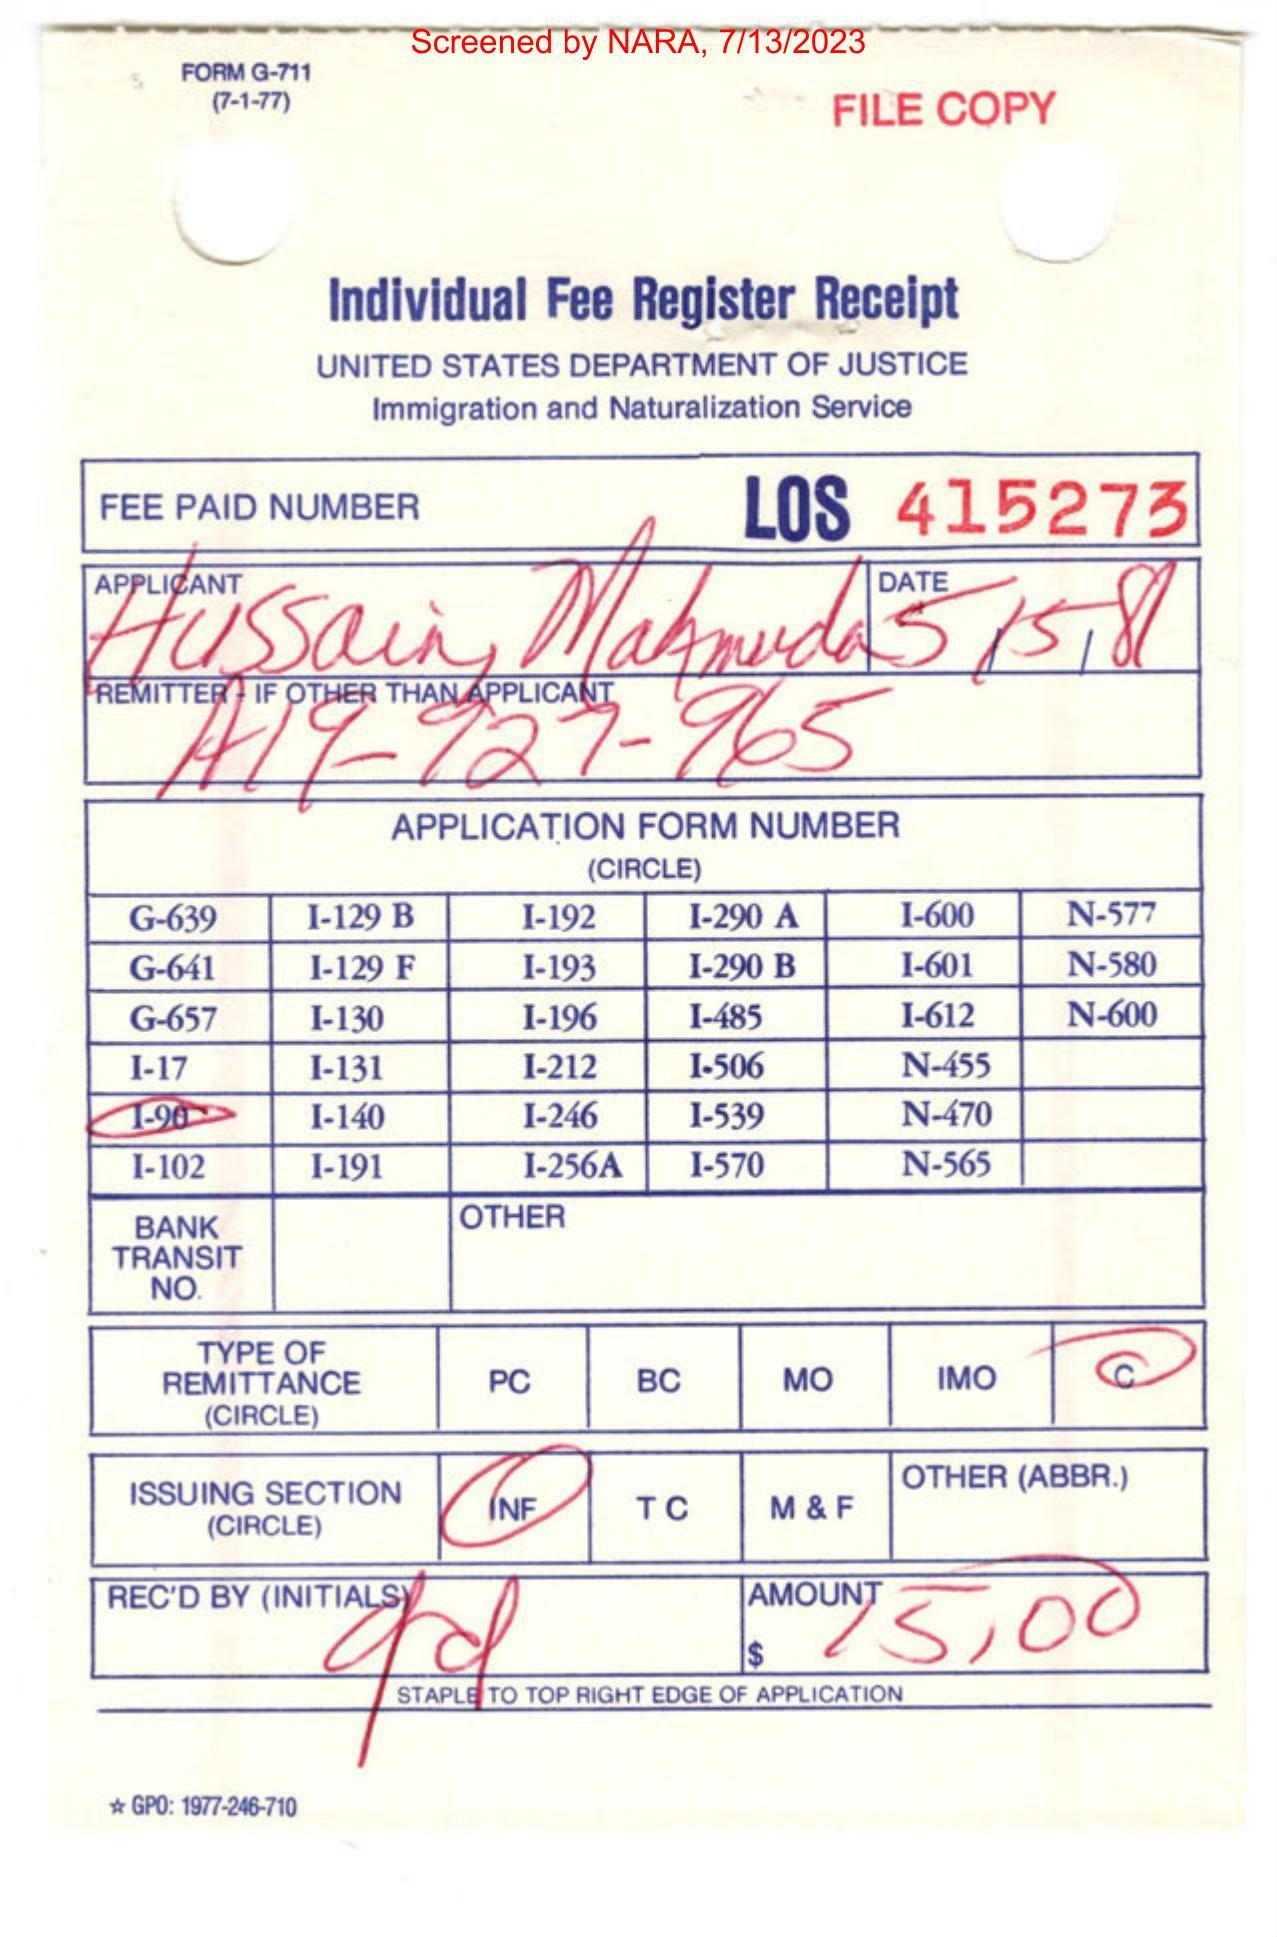 Screened by NARA, 7/13/2023
FORM G-711
(7-1-77)
FILE COPY
Individual Fee Register Receipt
UNITED STATES DEPARTMENT OF JUSTICE
Immigration and Naturalization Service
FEE PAID NUMBER LOS 415273
APPLICANT DATE
Hussain, Mahmuda 5/15/81
REMITTER - IF OTHER THAN APPLICANT
A19-927-965
APPLICATION FORM NUMBER
(CIRCLE)
G-639 I-129 B I-192 I-290 A I-600 N-577
G-641 I-129 F I-193 I-290 B I-601 N-580
G-657 I-130 I-196 I-485 I-612 N-600
I-17 I-131 I-212 I-506 N-455
I-90 I-140 I-246 I-539 N-470
I-102 I-191 I-256A I-570 N-565
BANK TRANSIT NO. OTHER
TYPE OF REMITTANCE (CIRCLE) PC BC MO IMO C
ISSUING SECTION (CIRCLE) INF T C M & F OTHER (ABBR.)
REC'D BY (INITIALS) AMOUNT
$ 15,00
STAPLE TO TOP RIGHT EDGE OF APPLICATION
☆ GPO: 1977-246-710